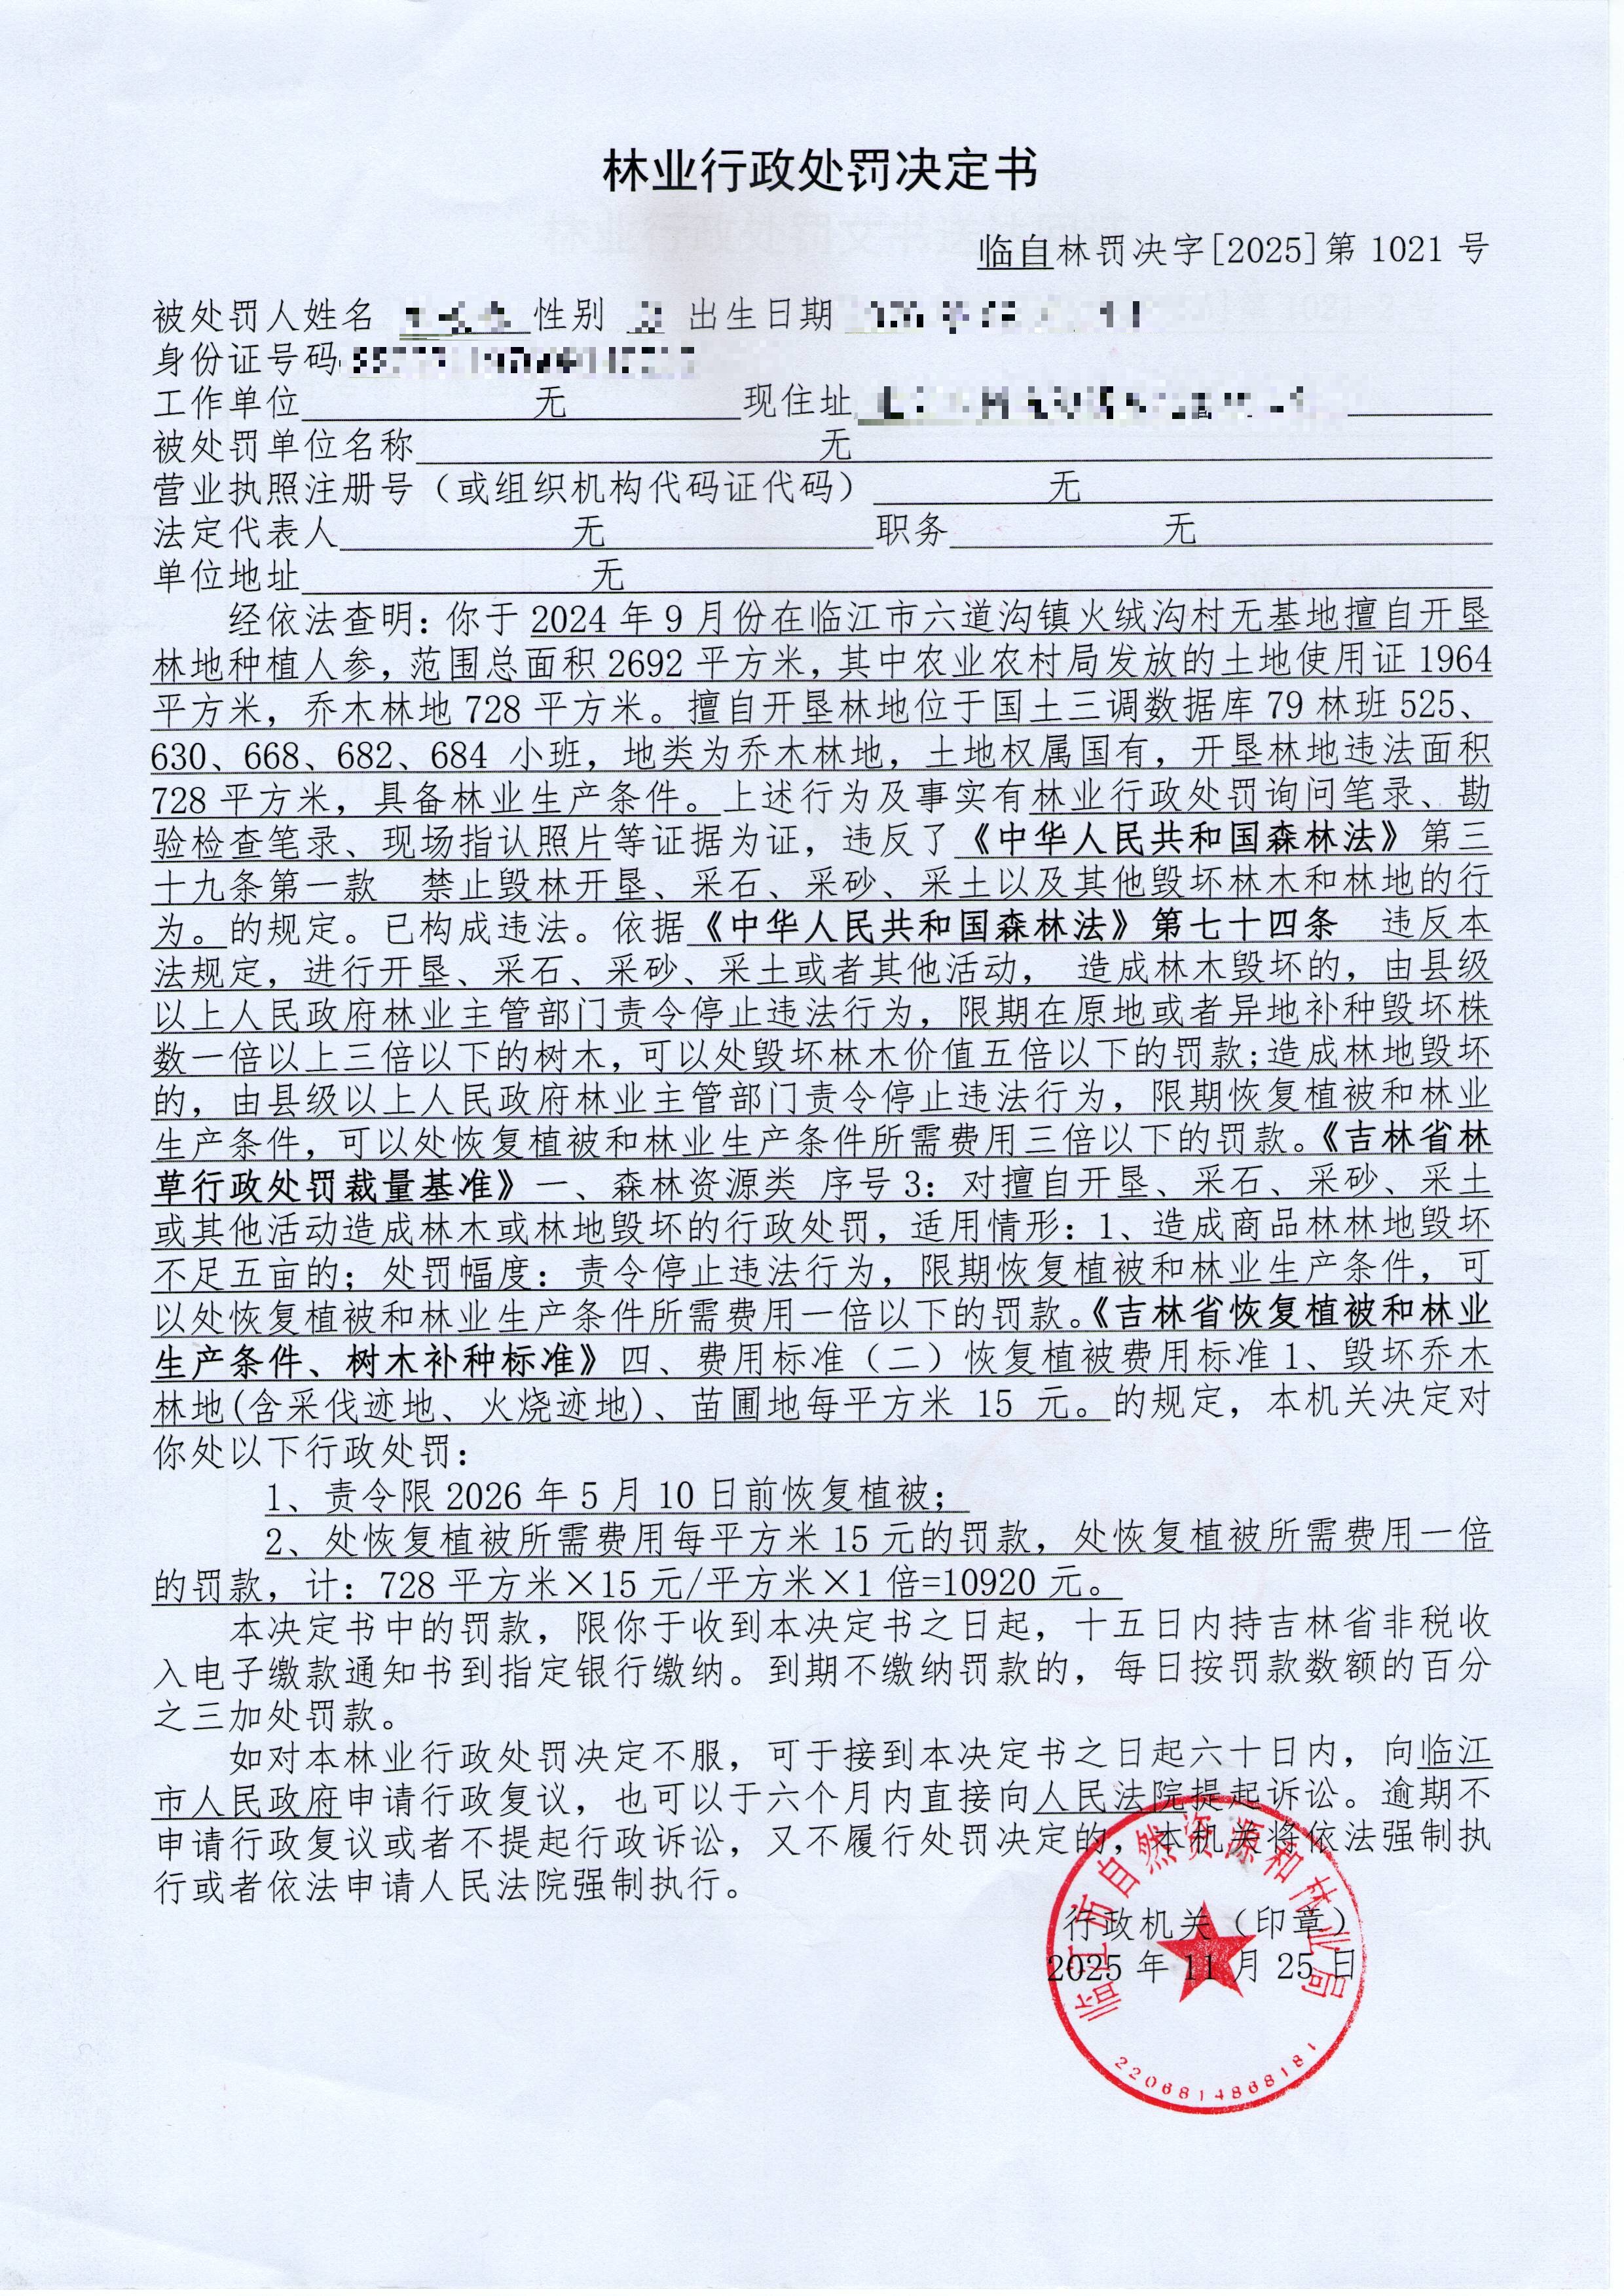 林业行政处罚决定书
临自林罚决字[2025]第 1021 号
被处罚人姓名 性别 出生日期
身份证号码
工作单位 无 现住址
被处罚单位名称 无
营业执照注册号（或组织机构代码证代码） 无
法定代表人 无 职务 无
单位地址 无
经依法查明：你于 2024 年 9 月份在临江市六道沟镇火绒沟村无基地擅自开垦
林地种植人参，范围总面积 2692 平方米，其中农业农村局发放的土地使用证 1964
平方米，乔木林地 728 平方米。擅自开垦林地位于国土三调数据库 79 林班 525、
630、668、682、684 小班，地类为乔木林地，土地权属国有，开垦林地违法面积
728 平方米，具备林业生产条件。上述行为及事实有林业行政处罚询问笔录、勘
验检查笔录、现场指认照片等证据为证，违反了《中华人民共和国森林法》第三
十九条第一款 禁止毁林开垦、采石、采砂、采土以及其他毁坏林木和林地的行
为。的规定。已构成违法。依据《中华人民共和国森林法》第七十四条 违反本
法规定，进行开垦、采石、采砂、采土或者其他活动， 造成林木毁坏的，由县级
以上人民政府林业主管部门责令停止违法行为，限期在原地或者异地补种毁坏株
数一倍以上三倍以下的树木，可以处毁坏林木价值五倍以下的罚款;造成林地毁坏
的，由县级以上人民政府林业主管部门责令停止违法行为，限期恢复植被和林业
生产条件，可以处恢复植被和林业生产条件所需费用三倍以下的罚款。《吉林省林
草行政处罚裁量基准》一、森林资源类 序号 3：对擅自开垦、采石、采砂、采土
或其他活动造成林木或林地毁坏的行政处罚，适用情形：1、造成商品林林地毁坏
不足五亩的；处罚幅度：责令停止违法行为，限期恢复植被和林业生产条件，可
以处恢复植被和林业生产条件所需费用一倍以下的罚款。《吉林省恢复植被和林业
生产条件、树木补种标准》四、费用标准（二）恢复植被费用标准 1、毁坏乔木
林地(含采伐迹地、火烧迹地)、苗圃地每平方米 15 元。的规定，本机关决定对
你处以下行政处罚：
1、责令限 2026 年 5 月 10 日前恢复植被；
2、处恢复植被所需费用每平方米 15 元的罚款，处恢复植被所需费用一倍
的罚款，计：728 平方米×15 元/平方米×1 倍=10920 元。
本决定书中的罚款，限你于收到本决定书之日起，十五日内持吉林省非税收
入电子缴款通知书到指定银行缴纳。到期不缴纳罚款的，每日按罚款数额的百分
之三加处罚款。
如对本林业行政处罚决定不服，可于接到本决定书之日起六十日内，向临江
市人民政府申请行政复议，也可以于六个月内直接向人民法院提起诉讼。逾期不
申请行政复议或者不提起行政诉讼，又不履行处罚决定的，本机关将依法强制执
行或者依法申请人民法院强制执行。
行政机关（印章）
2025 年 11 月 25 日
临江市自然资源和林业局
2206814868181